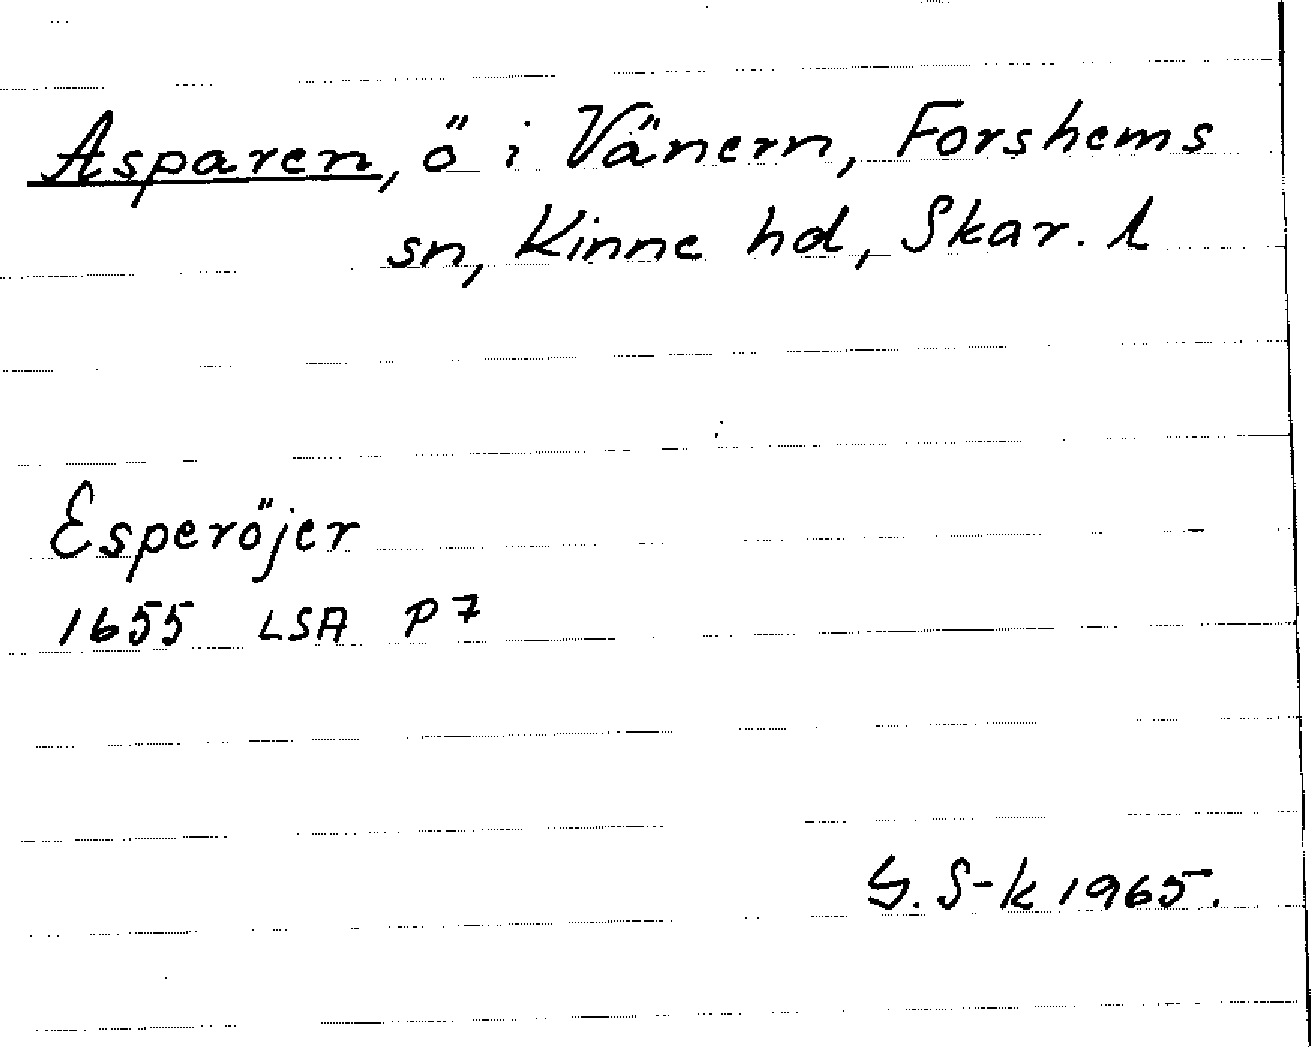 Asparen, ö i Vänern, Forshems
sn, Kinne hd, Skar. l
Esperöjer
1655 LSA P7
G. S-k 1965.